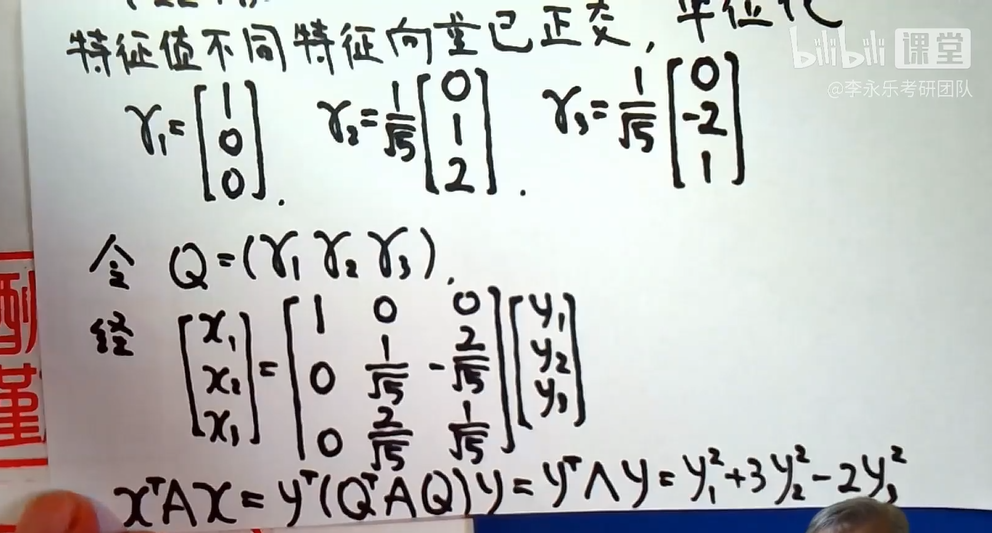 特征值不同特征向量已正交, 单位化
bilibili 课堂
@李永乐考研团队
γ₁=[1 0 0]. γ₂=1/√5[0 1 2]. γ₃=1/√5[0 -2 1]
令 Q=(γ₁ γ₂ γ₃).
经 [x₁ x₂ x₃]=[1 0 0; 0 1/√5 -2/√5; 0 2/√5 1/√5][y₁ y₂ y₃]
xᵀAx=yᵀ(QᵀAQ)y=yᵀΛy=y₁²+3y₂²-2y₃²